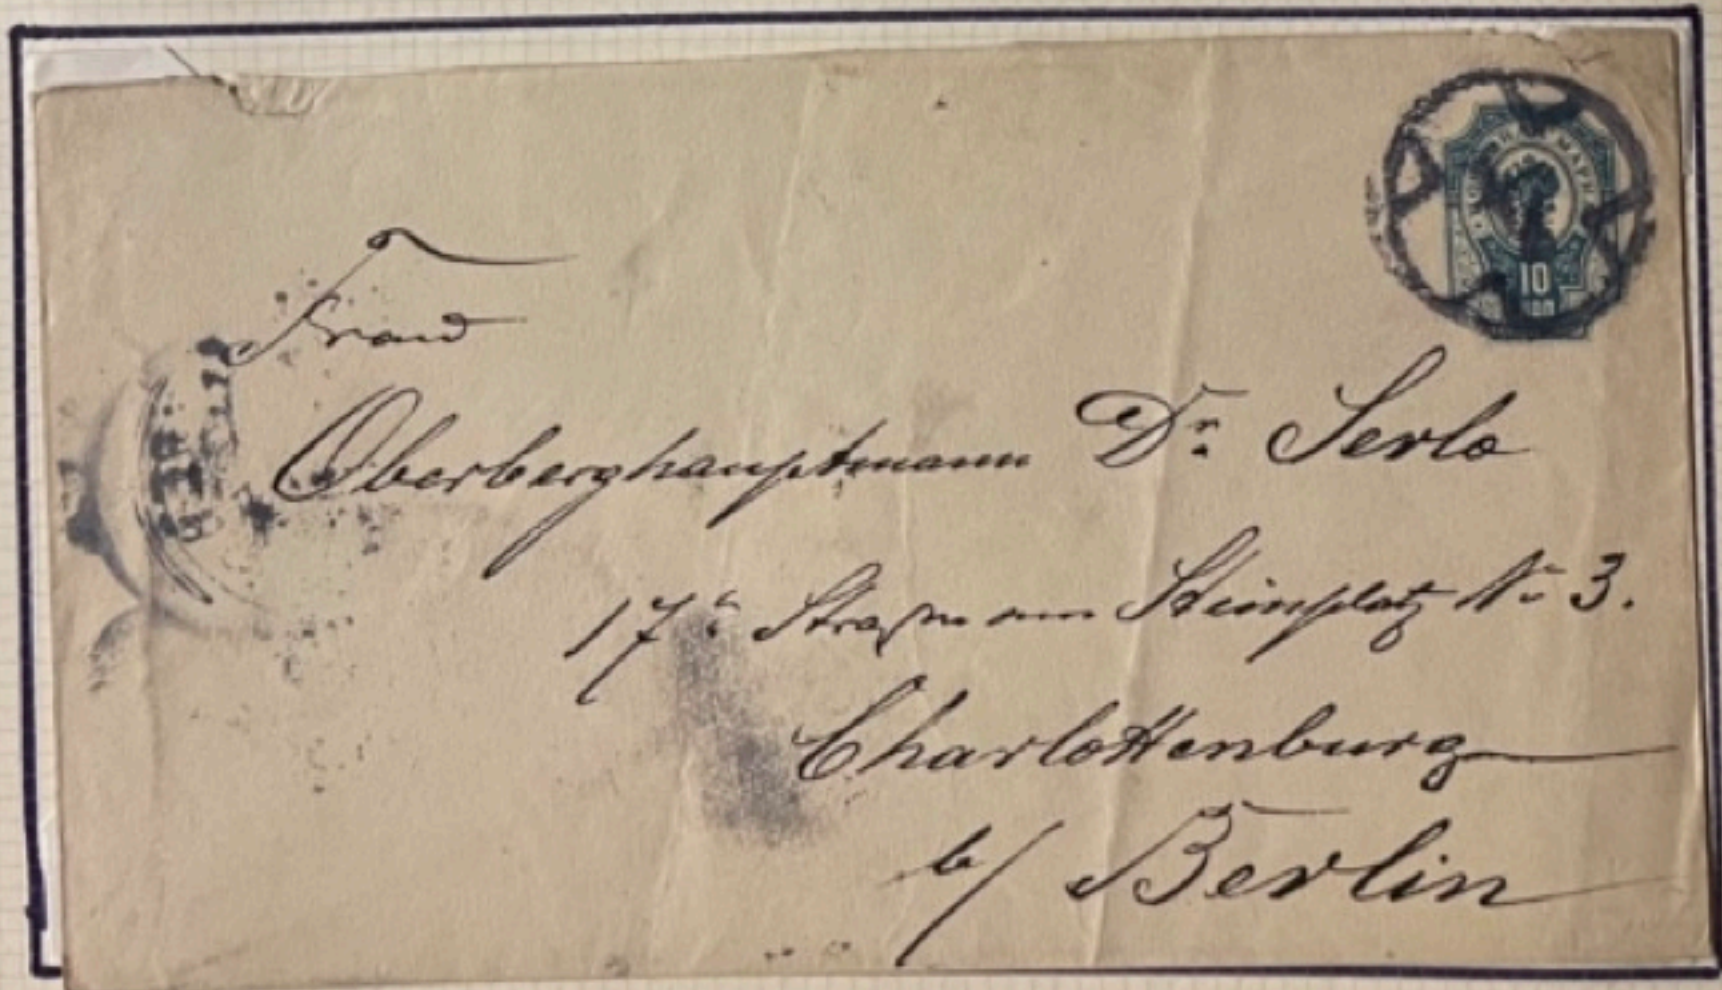 10
Frau
Oberberghauptmann Dr. Serlo
17te Straße am Steinplatz No 3.
Charlottenburg
b/ Berlin